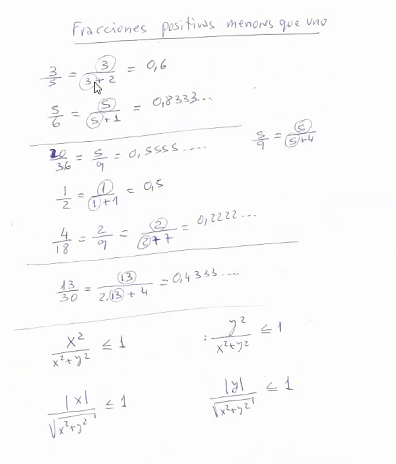 Fracciones positivas menores que uno
3/5 = 3/(3+2) = 0,6
5/6 = 5/(5+1) = 0,8333...
20/36 = 5/9 = 0,5555..... 5/9 = 5/(5+4)
1/2 = 1/(1+1) = 0,5
4/18 = 2/9 = 2/(2+7) = 0,2222...
13/30 = 13/(2.13+4) = 0,4333....
x²/(x²+y²) ≤ 1 : y²/(x²+y²) ≤ 1
|x|/√(x²+y²) ≤ 1 |y|/√(x²+y²) ≤ 1